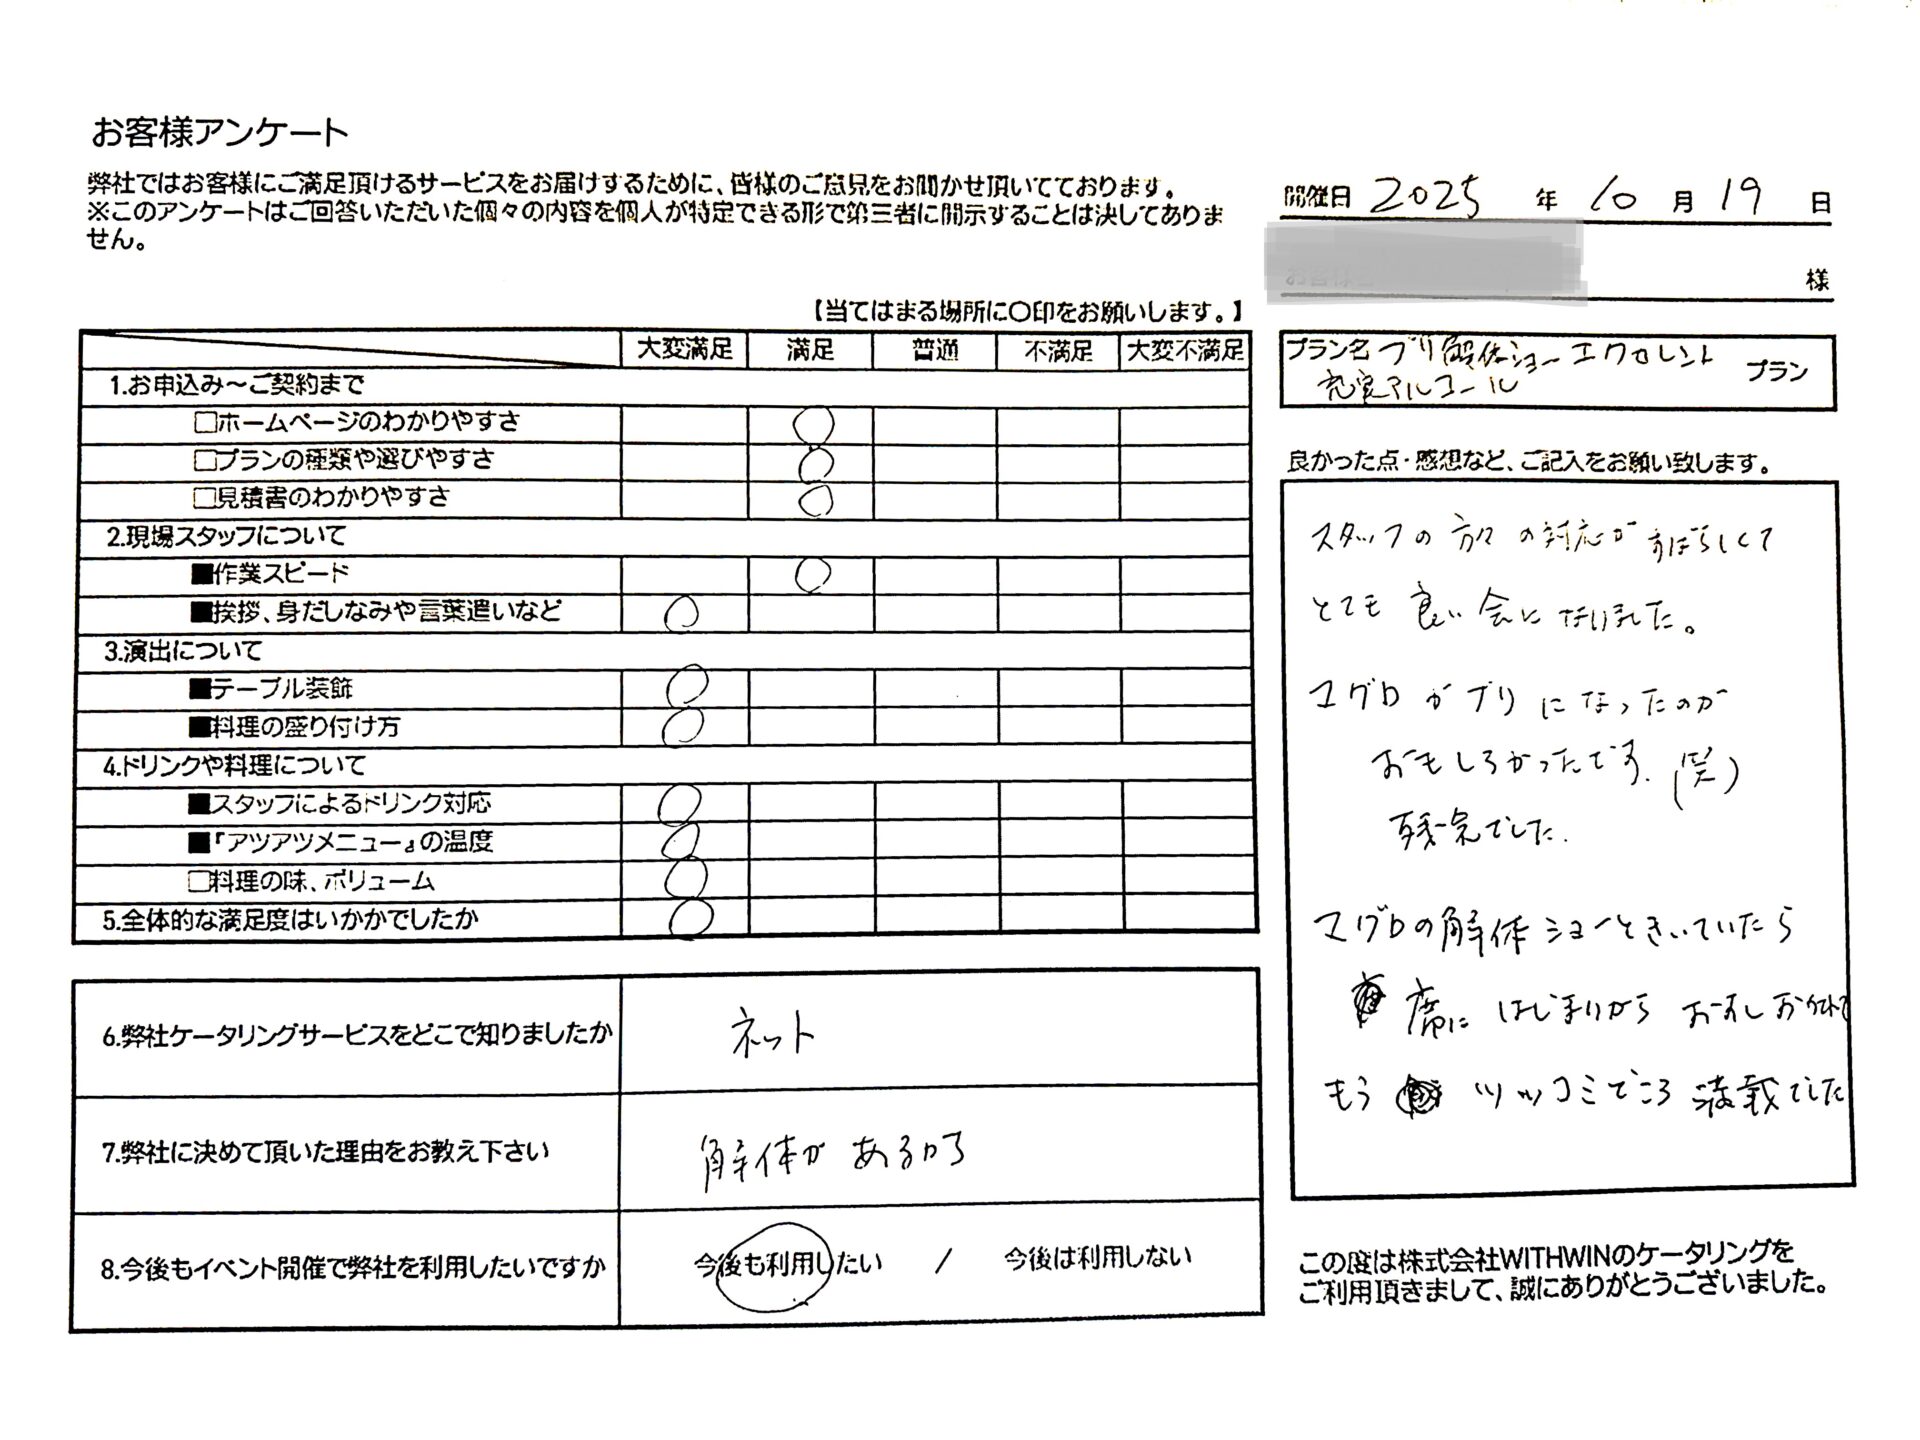 お客様アンケート
弊社ではお客様にご満足頂けるサービスをお届けするために、皆様のご意見をお聞かせ頂いてております。
※このアンケートはご回答いただいた個々の内容を個人が特定できる形で第三者に開示することは決してありま
せん。
開催日 2025 年 10 月 19 日
お客様名 様
【当てはまる場所に〇印をお願いします。】
大変満足 満足 普通 不満足 大変不満足
1.お申込み～ご契約まで
□ホームページのわかりやすさ ○
□プランの種類や選びやすさ ○
□見積書のわかりやすさ ○
2.現場スタッフについて
■作業スピード ○
■挨拶、身だしなみや言葉遣いなど ○
3.演出について
■テーブル装飾 ○
■料理の盛り付け方 ○
4.ドリンクや料理について
■スタッフによるドリンク対応 ○
■『アツアツメニュー』の温度 ○
□料理の味、ボリューム ○
5.全体的な満足度はいかかでしたか ○
6.弊社ケータリングサービスをどこで知りましたか ネット
7.弊社に決めて頂いた理由をお教え下さい 解体があるから
8.今後もイベント開催で弊社を利用したいですか 今後も利用したい / 今後は利用しない
プラン名 ブリ解体ショーエクセレント プラン
充実アルコール
良かった点・感想など、ご記入をお願い致します。
スタッフの方々の対応がすばらしくて
とても良い会になりました。
マグロがブリになったのが
おもしろかったです.(笑)
残念でした.
マグロの解体ショーときいていたら
席に はじまりから おすし
もう ツッコミどころ満載でした
この度は株式会社WITHWINのケータリングを
ご利用頂きまして、誠にありがとうございました。